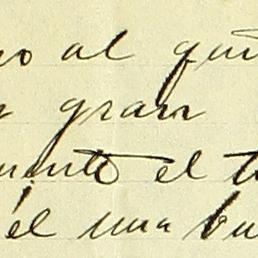 no al que
gran
mente el t
él una bu